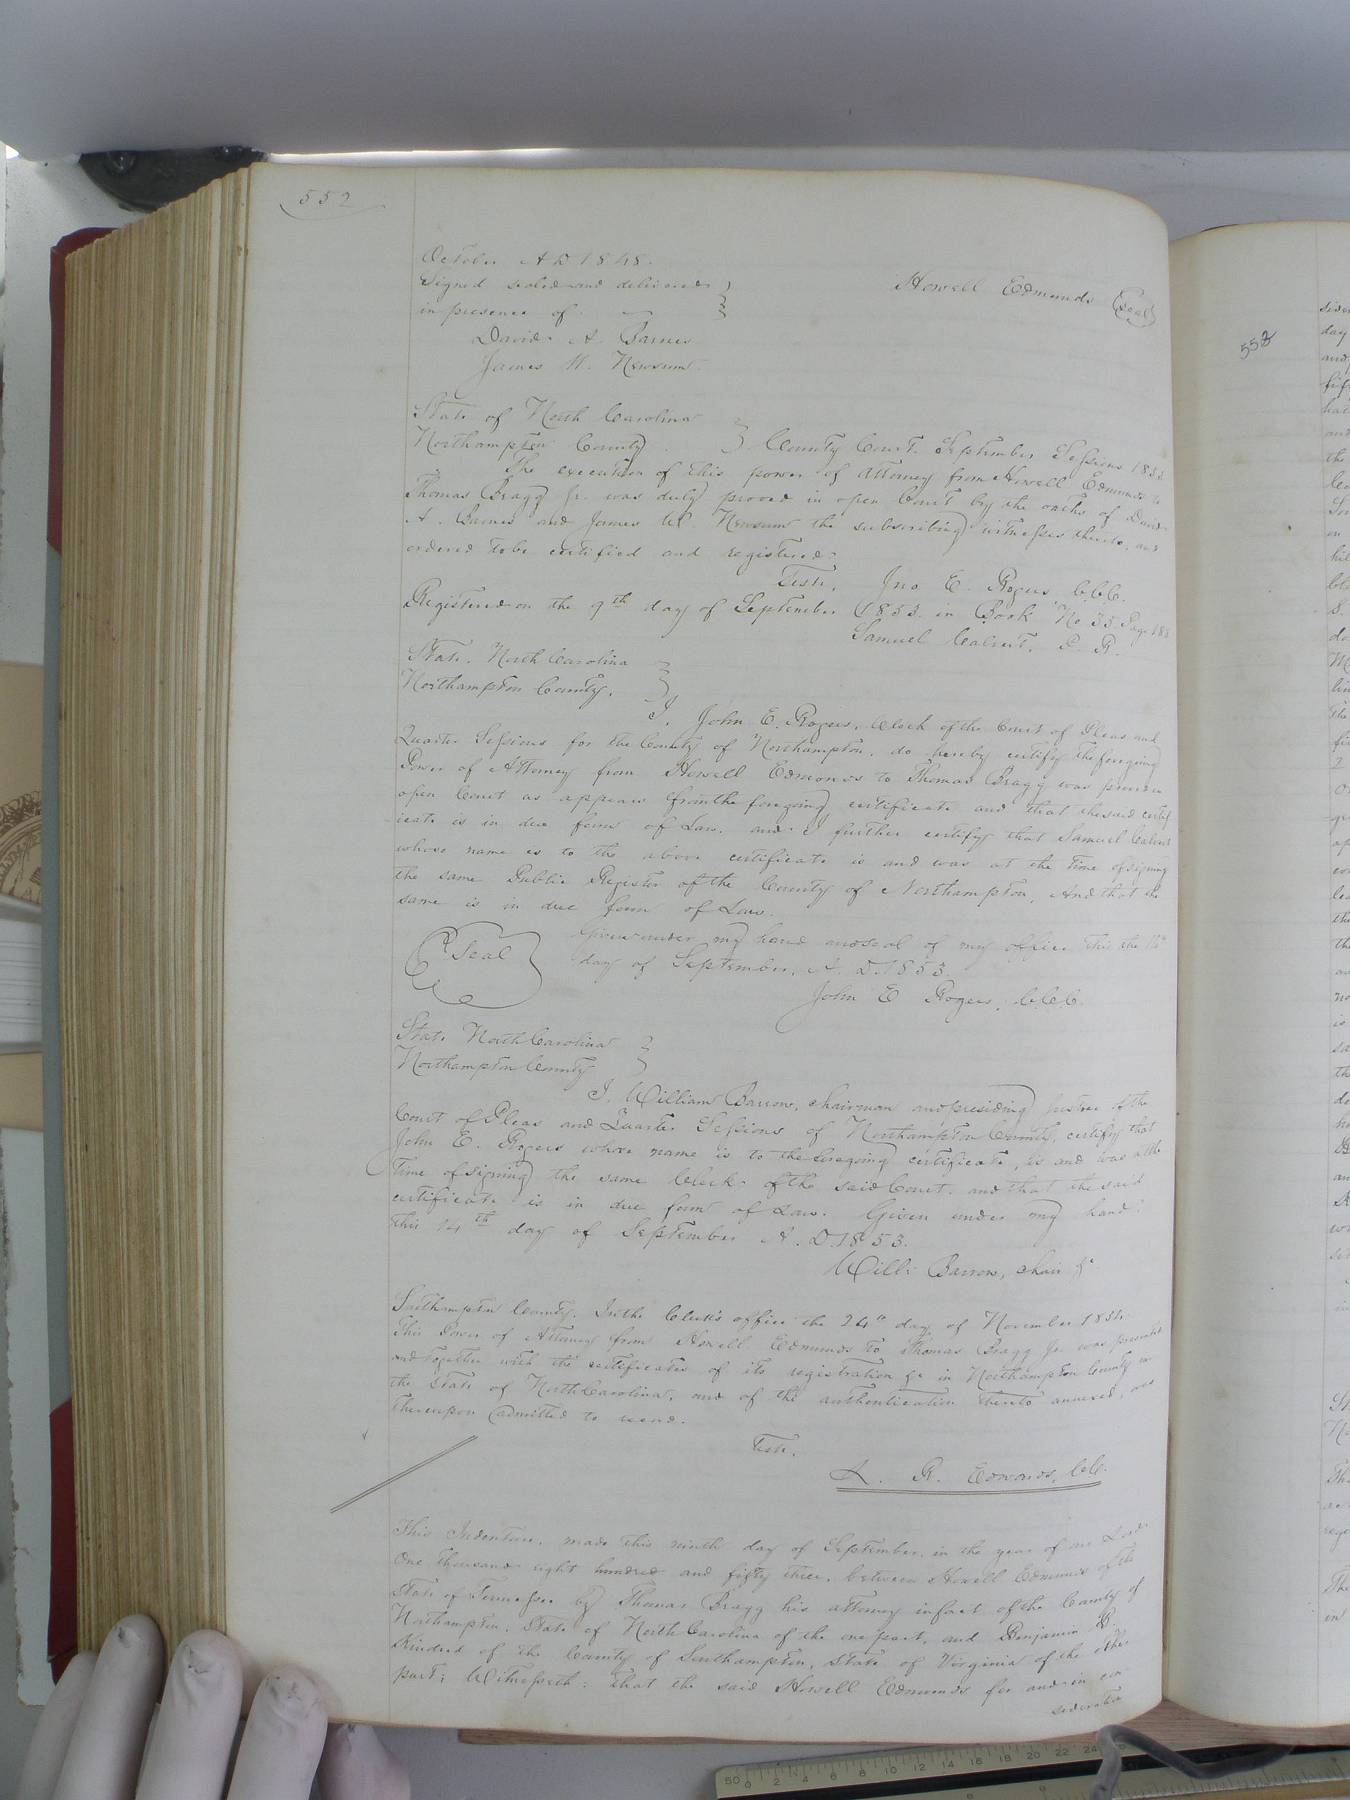 552
October A D 1848.
Signed sealed and delivered
in presence of. Howell Edmunds (Seal)
David A. Barnes
James W. Newsum.
State of North Carolina
Northampton County. County Court. September Sessions 1853
The execution of this power of attorney from Howell Edmunds to
Thomas Bragg Jr. was duly proved in open Court by the oaths of David
A. Barnes and James W. Newsum the subscribing witnesses thereto, and
ordered to be certified and registered.
Teste, Jno E. Rogers C.C.C.
Registered on the 9th day of September 1853. in Book No 33. Page 188
Samuel Calvert, P. R.
State. North Carolina
Northampton County.
I. John E. Rogers, Clerk of the Court of Pleas and
Quarter Sessions for the County of Northampton. do hereby certify the foregoing
Power of Attorney from Howell Edmonds to Thomas Bragg was proven in
open Court as appears from the foregoing certificate and that the said certif
icate is in due form of Law. and I further certify that Samuel Calvert
whose name is to the above certificate is and was at the time of signing
the same Public Register of the County of Northampton, And that the
same is in due form of Law.
Seal Given under my hand and seal of my office this the 14th
day of September, A. D. 1853.
John E Rogers, C.C.C.
State North Carolina
Northampton County
I. William Barrow, chairman and presiding Justice of the
Court of Pleas and Quarter Sessions of Northampton County, certify that
John E. Rogers whose name is to the foregoing certificate, is and was at the
time of signing the same Clerk of the said Court. and that the said
certificate is in due form of Law. Given under my hand
this 14th day of September A. D. 1853.
Will: Barrow, chair &c
Southampton County. In the Clerk's office the 24th day of November 1854.
This Power of Attorney from Howell Edmunds to Thomas Bragg Jr was presented
and together with the certificates of its registration &c in Northampton County in
the State of North Carolina, and of the authentication thereto annexed, was
thereupon admitted to record.
Teste.
L. R. Edwards, C.C.
This Indenture. made this ninth day of September. in the year of our Lord
One thousand eight hundred and fifty three. between Howell Edmunds of the
State of Tennessee by Thomas Bragg his attorney in fact of the County of
Northampton. State of North Carolina of the one part, and Benjamin
Kindred of the County of Southampton, State of Virginia of the other
part; Witnesseth: That the said Howell Edmunds for and in con
sideration
553